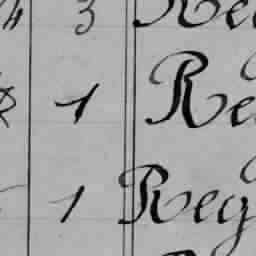 4 3 Re
1 Re
1 Reg